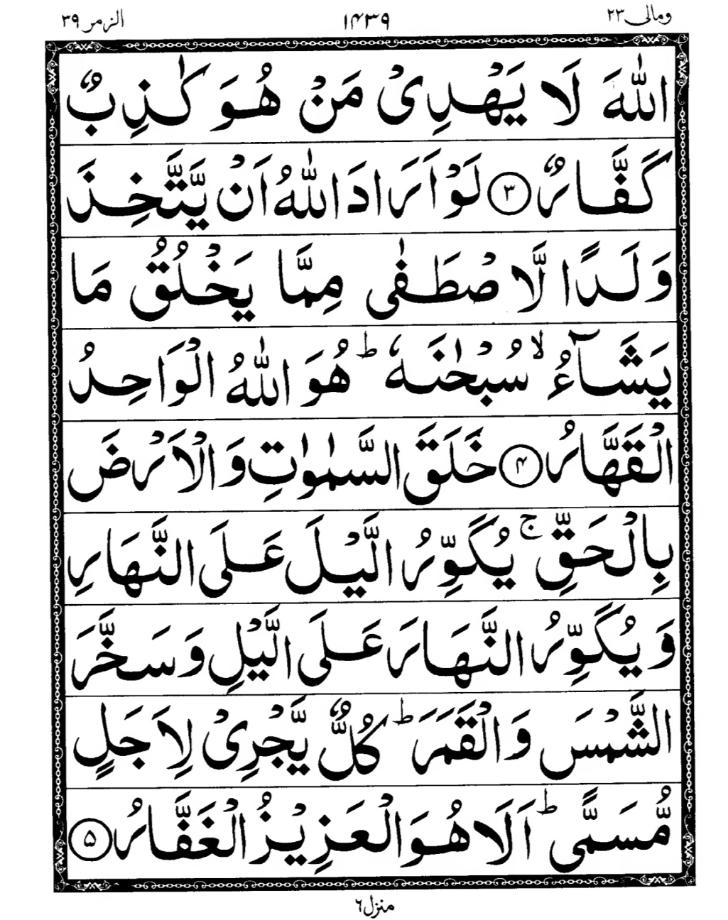 ومالی ۲۳ ۱۴۳۹ الزمر ۳۹
اللّٰهَ لَا يَهْدِیْ مَنْ هُوَ كٰذِبٌ
كَفَّارٌ ۳ لَوْ اَرَادَ اللّٰهُ اَنْ يَّتَّخِذَ
وَلَدًا لَّاصْطَفٰی مِمَّا يَخْلُقُ مَا
يَشَآءُ ۙ سُبْحٰنَهٗ ؕ هُوَ اللّٰهُ الْوَاحِدُ
الْقَهَّارُ ۴ خَلَقَ السَّمٰوٰتِ وَالْاَرْضَ
بِالْحَقِّ ۚ يُكَوِّرُ الَّيْلَ عَلَی النَّهَارِ
وَيُكَوِّرُ النَّهَارَ عَلَی الَّيْلِ وَسَخَّرَ
الشَّمْسَ وَالْقَمَرَ ؕ كُلٌّ يَّجْرِیْ لِاَجَلٍ
مُّسَمًّی ؕ اَلَا هُوَ الْعَزِيْزُ الْغَفَّارُ ۵
منزل ۶